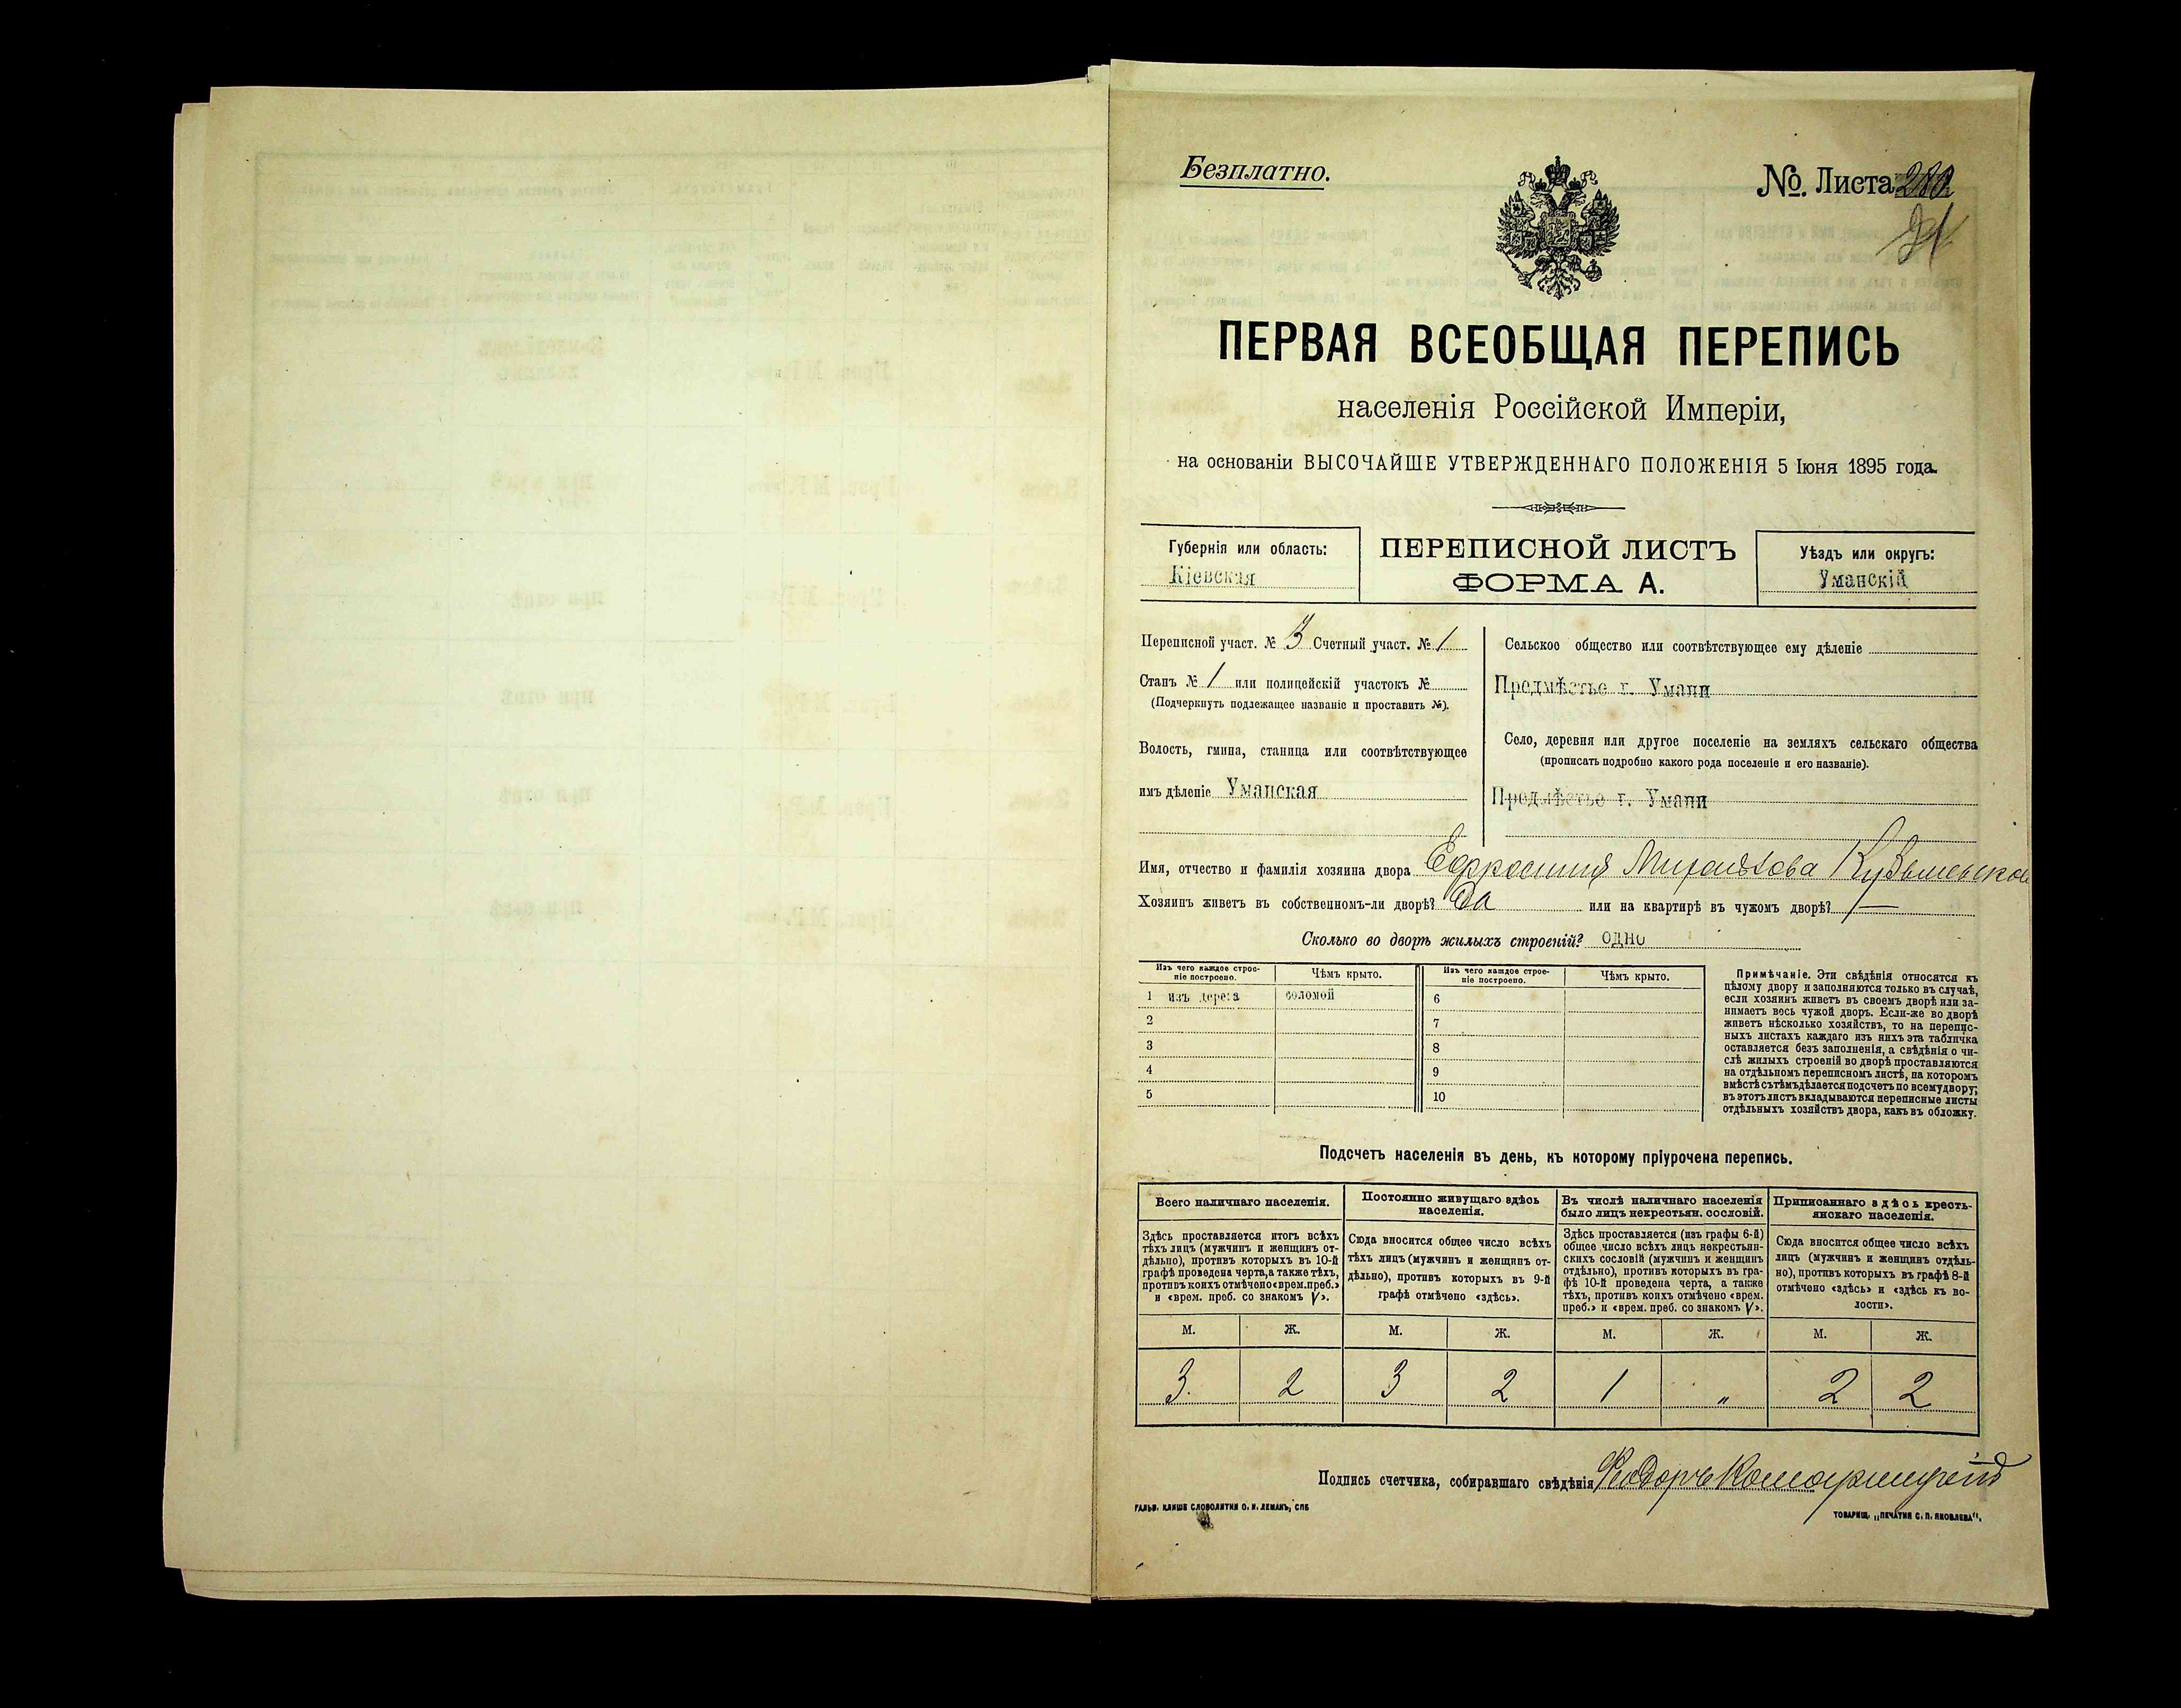 Безплатно.
№. Листа
ПЕРВАЯ ВСЕОБЩАЯ ПЕРЕПИСЬ
населенія Россійской Имперіи,
на основаніи ВЫСОЧАЙШЕ УТВЕРЖДЕННАГО ПОЛОЖЕНІЯ 5 Іюня 1895 года.
Губернія или область:
Кіевская
ПЕРЕПИСНОЙ ЛИСТЪ
ФОРМА А.
Уѣздъ или округъ:
Уманскій
Переписной участ. № 3 Счетный участ. № 1
Станъ № 1 или полицейскій участокъ №
(Подчеркнуть подлежащее названіе и проставить №).
Волость, гмина, станица или соотвѣтствующее
имъ дѣленіе Уманская
Сельское общество или соотвѣтствующее ему дѣленіе
Предмѣстье г. Умани
Село, деревня или другое поселеніе на земляхъ сельскаго общества
(прописать подробно какого рода поселеніе и его названіе).
Предмѣстье г. Умани
Имя, отчество и фамилія хозяина двора Ефросинія
Хозяинъ живетъ въ собственномъ-ли дворѣ? Да или на квартирѣ въ чужомъ дворѣ? —
Сколько во дворѣ жилыхъ строеній? одно
Изъ чего каждое строе-
ніе построено.
Чѣмъ крыто.
Изъ чего каждое строе-
ніе построено.
Чѣмъ крыто.
1 изъ дерева соломой 6
2 7
3 8
4 9
5 10
Примѣчаніе. Эти свѣдѣнія относятся къ
цѣлому двору и заполняются только въ случаѣ,
если хозяинъ живетъ въ своемъ дворѣ или за-
нимаетъ весь чужой дворъ. Если-же во дворѣ
живетъ нѣсколько хозяйствъ, то на перепис-
ныхъ листахъ каждаго изъ нихъ эта табличка
оставляется безъ заполненія, а свѣдѣнія о чи-
слѣ жилыхъ строеній во дворѣ проставляются
на отдѣльномъ переписномъ листѣ, на которомъ
вмѣстѣ съ тѣмъ дѣлается подсчетъ по всему двору;
въ этотъ листъ вкладываются переписные листы
отдѣльныхъ хозяйствъ двора, какъ въ обложку.
Подсчетъ населенія въ день, къ которому пріурочена перепись.
Всего наличнаго населенія.
Здѣсь проставляется итогъ всѣхъ
тѣхъ лицъ (мужчинъ и женщинъ от-
дѣльно), противъ которыхъ въ 10-й
графѣ проведена черта, а также тѣхъ,
противъ коихъ отмѣчено «врем. преб.»
и «врем. преб. со знакомъ V».
Постоянно живущаго здѣсь
населенія.
Сюда вносится общее число всѣхъ
тѣхъ лицъ (мужчинъ и женщинъ от-
дѣльно), противъ которыхъ въ 9-й
графѣ отмѣчено «здѣсь».
Въ числѣ наличнаго населенія
было лицъ некрестьян. сословій.
Здѣсь проставляется (изъ графы 6-й)
общее число всѣхъ лицъ некрестьян-
скихъ сословій (мужчинъ и женщинъ
отдѣльно), противъ которыхъ въ гра-
фѣ 10-й проведена черта, а также
тѣхъ, противъ коихъ отмѣчено «врем.
преб.» и «врем. преб. со знакомъ V».
Приписаннаго здѣсь кресть-
янскаго населенія.
Сюда вносится общее число всѣхъ
лицъ (мужчинъ и женщинъ отдѣль-
но), противъ которыхъ въ графѣ 8-й
отмѣчено «здѣсь» и «здѣсь къ во-
лости».
М. Ж. М. Ж. М. Ж. М. Ж.
3. 2 3 2 1 „ 2 2
Подпись счетчика, собиравшаго свѣдѣнія
ГАЛЬВ. КЛИШЕ СЛОВОЛИТНИ О. И. ЛЕМАНЪ, СПБ
ТОВАРИЩ. „ПЕЧАТНЯ С. П. ЯКОВЛЕВА".